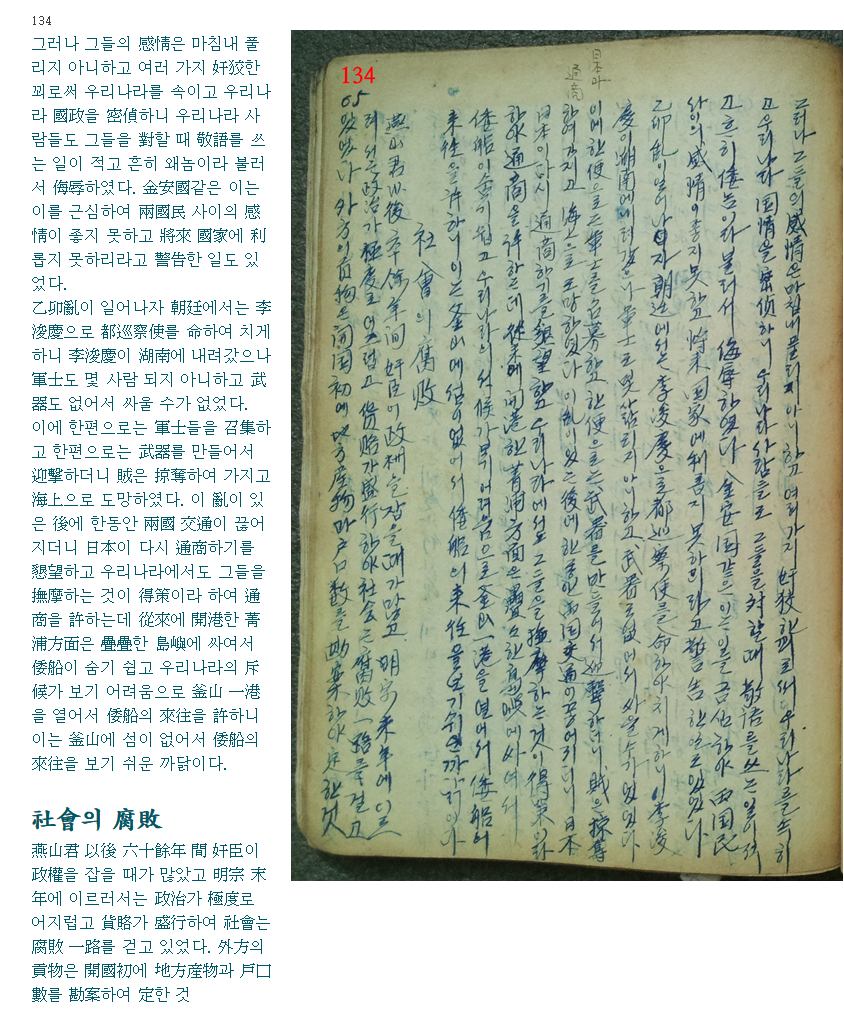 134
그러나 그들의 感情은 마침내 풀
리지 아니하고 여러 가지 奸狡한
꾀로써 우리나라를 속이고 우리나
라 國政을 密偵하니 우리나라 사
람들도 그들을 對할 때 敬語를 쓰
는 일이 적고 흔히 왜놈이라 불러
서 侮辱하였다. 金安國같은 이는
이를 근심하여 兩國民 사이의 感
情이 좋지 못하고 將來 國家에 利
롭지 못하리라고 警告한 일도 있
었다.
乙卯亂이 일어나자 朝廷에서는 李
浚慶으로 都巡察使를 命하여 치게
하니 李浚慶이 湖南에 내려갔으나
軍士도 몇 사람 되지 아니하고 武
器도 없어서 싸울 수가 없었다.
이에 한편으로는 軍士들을 召集하
고 한편으로는 武器를 만들어서
迎擊하더니 賊은 掠奪하여 가지고
海上으로 도망하였다. 이 亂이 있
은 後에 한동안 兩國 交通이 끊어
지더니 日本이 다시 通商하기를
懇望하고 우리나라에서도 그들을
撫摩하는 것이 得策이라 하여 通
商을 許하는데 從來에 開港한 菁
浦方面은 疊疊한 島嶼에 싸여서
倭船이 숨기 쉽고 우리나라의 斥
候가 보기 어려움으로 釜山 一港
을 열어서 倭船의 來往을 許하니
이는 釜山에 섬이 없어서 倭船의
來往을 보기 쉬운 까닭이다.
社會의 腐敗
燕山君 以後 六十餘年 間 奸臣이
政權을 잡을 때가 많았고 明宗 末
年에 이르러서는 政治가 極度로
어지럽고 貨賂가 盛行하여 社會는
腐敗 一路를 걷고 있었다. 外方의
貢物은 開國初에 地方産物과 戶口
數를 勘案하여 定한 것
134
그러나 그들의 感情은 마침내 풀리지 아니하고 여러가지 奸狡한 꾀로써 우리나라를 속이
고 우리나라 国情을 密偵하니 우리나라 사람들도 그들을 対할때 敬語를 쓰는 일이 적
고 흔히 倭놈이라 불러서 侮辱하였다 金安国같은 이는 이를 근심하야 両国民
사이의 感情이 좋지 못하고 将来 国家에 利롭지 못하리라고 警告한 일도 있었다
乙卯乱이 일어나자 朝廷에서는 李浚慶으로 都巡察使를 命하야 치게하니 李浚
慶이 湖南에 내려갔으나 軍士도 몇 사람 되지 아니하고 武器도 없어서 싸울수가 없었다
이에 한便으로는 軍士를 召募하고 한便으로는 武器를 만들어서 迎擊하더니 賊은 掠奪
하여 가지고 海上으로 도망하였다 이 乱이 있은 後에 한동안 両国 交通이 끊어지더니 日本
日本과
通商
日本이 다시 通商하기를 懇望하고 우리나라에서도 그들을 撫摩하는 것이 得策이라
하야 通商을 許하는데 從来에 開港한 菁浦方面은 疊々한 島嶼에 싸여서
倭船이 숨기 쉽고 우리나라의 斥候가 보기 어려움으로 釜山 一港을 열어서 倭船의
来往을 許하니 이는 釜山에 섬이 없어서 倭船의 来往을 보기 쉬운 까닭이다
社會의 腐敗
燕山君以後 六十余年间 奸臣이 政権을 잡을때가 많았고 明宗末年에 이르
러서는 政治가 極度로 어즈럽고 貨賂가 盛行하야 社会는 腐敗一路를 걷고
있었다 外方의 貢物은 開国初에 地方産物과 戶口数를 勘案하야 定한 것
65